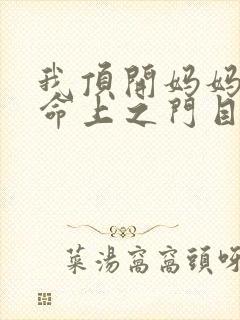 我頂開媽媽
命上之門自
菜湯窩窩頭呀